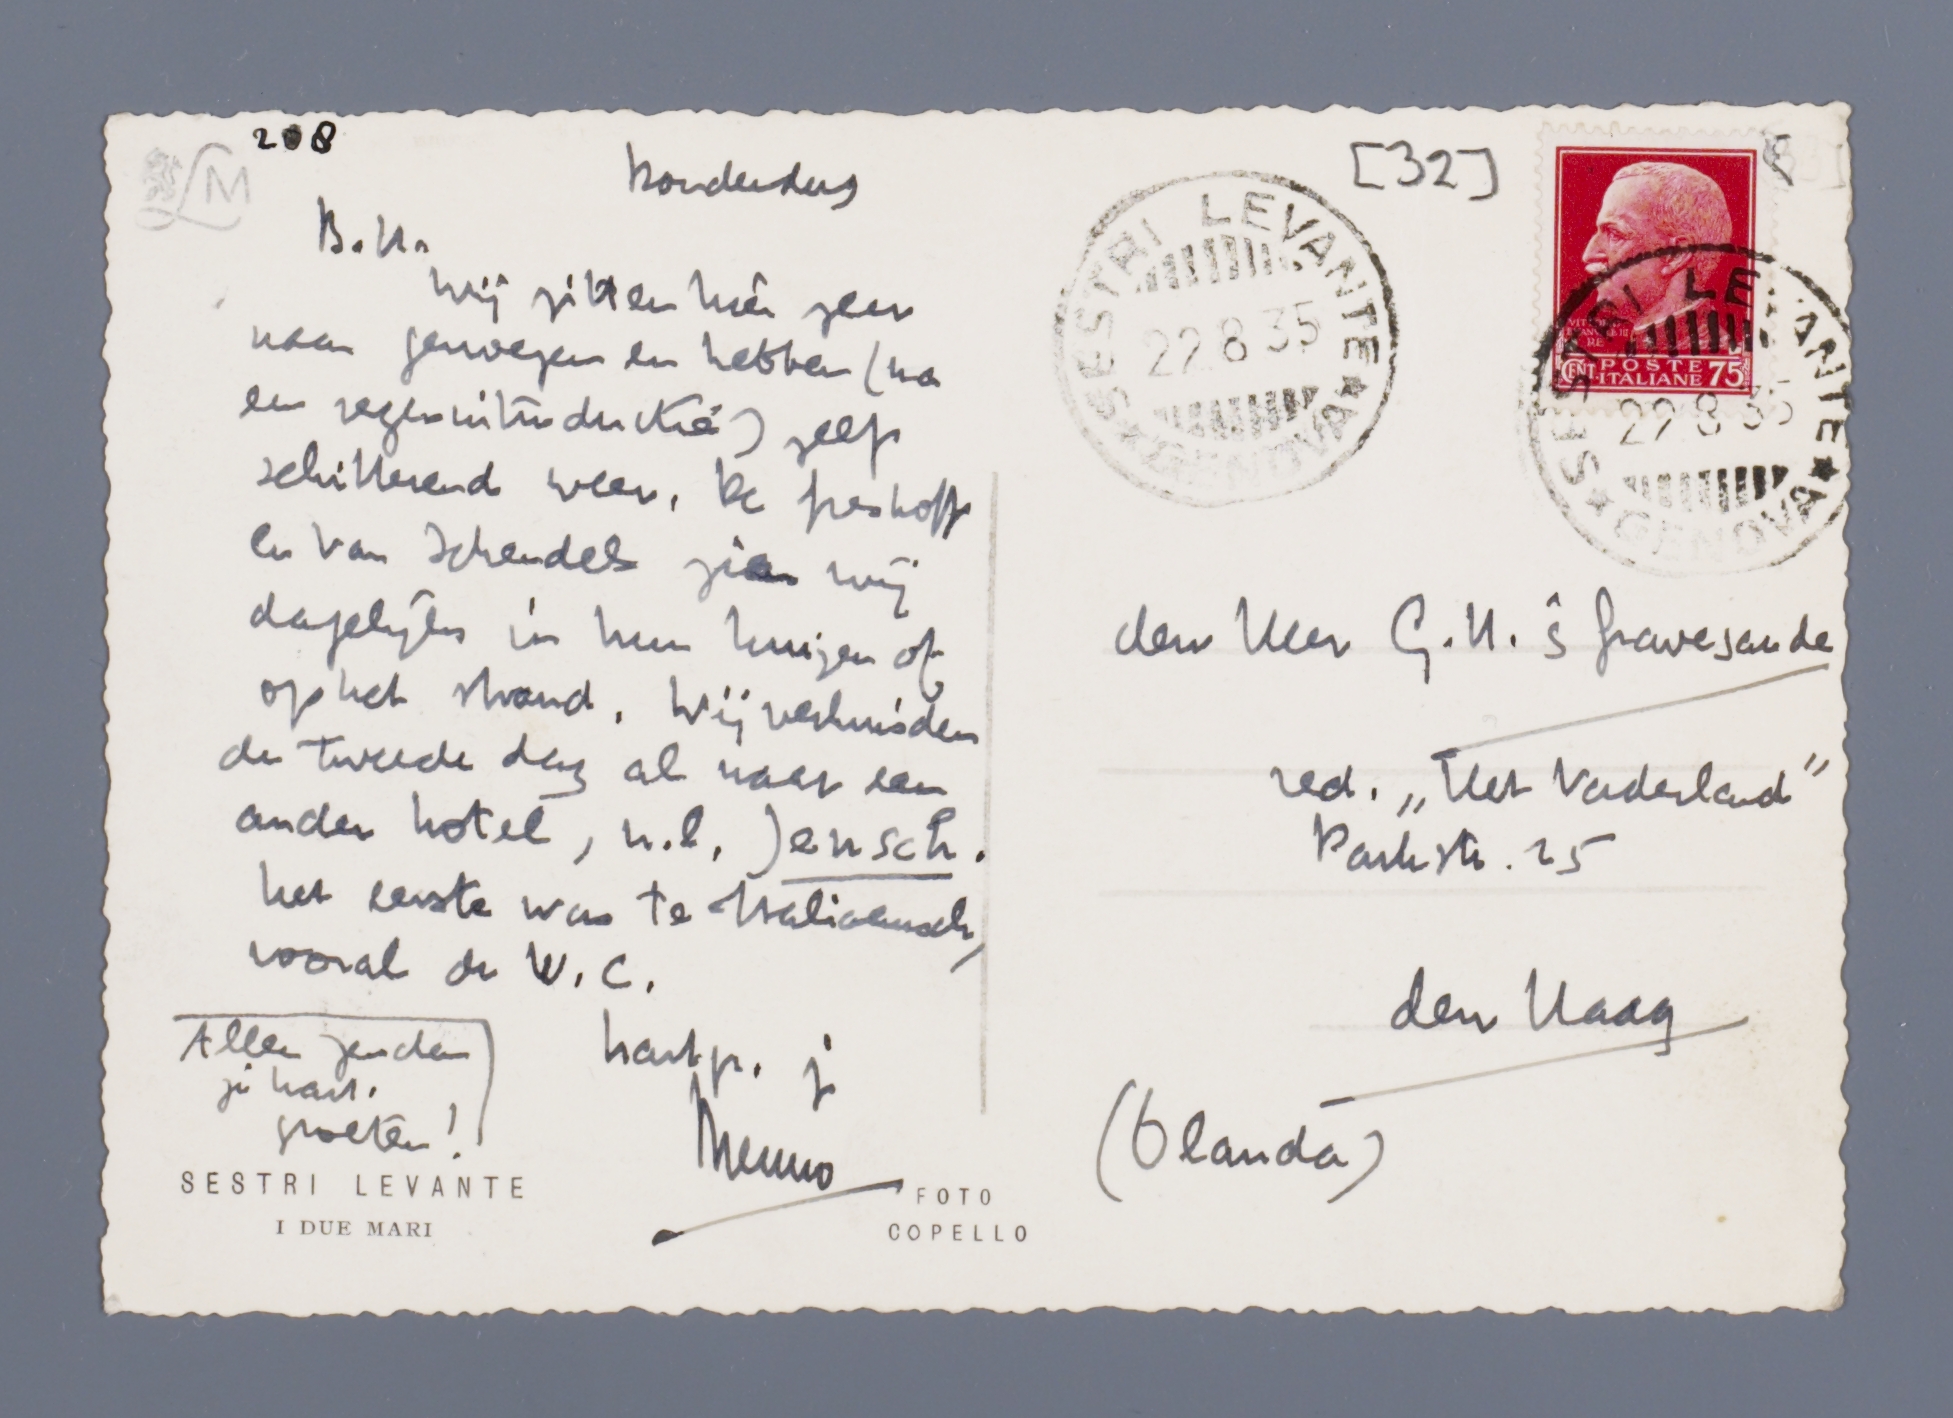 208
Donderdag
B.H.
Wij zitten hier zeer
naar genoegen en hebben (na
een regenintroductie) zelfs
schitterend weer. De Greshoffs
en Van Schendels zien wij
dagelijks in hun huizen of
op het strand. Wij verhuisden
de tweede dag al naar een
ander hotel, n.l. Jensch.
het eerste was te Italiaansch,
vooral de W.C.
hart. gr. je
Menno
Allen zenden
je hart.
groeten!
SESTRI LEVANTE
I DUE MARI
FOTO
COPELLO
[32]
SESTRI LEVANTE
22.8.35
GENOVA
POSTE
CENT. ITALIANE 75
SESTRI LEVANTE
22.8.35
GENOVA
den Heer G.H. 's Gravesande
red. „Het Vaderland”
Parkstr. 25
den Haag
(Olanda)
LM